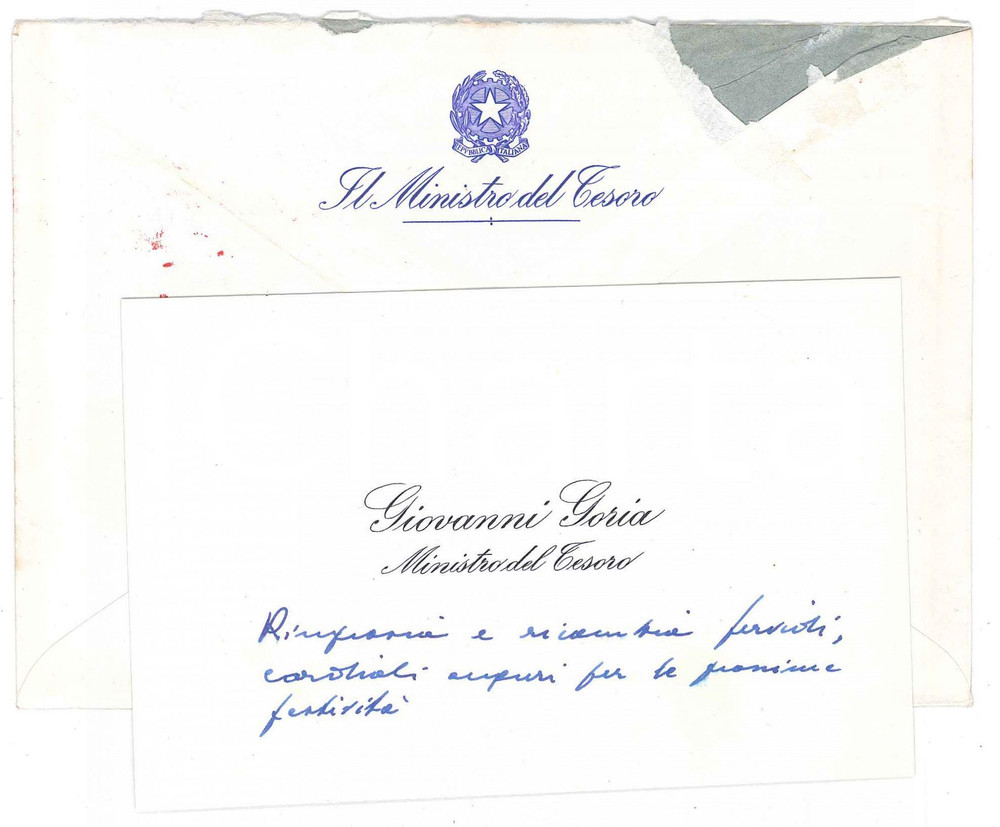 REPVBBLICA ITALIANA
Il Ministro del Tesoro
Charta
Giovanni Goria
Ministro del Tesoro
Ringrazia e ricambia fervidi,
cordiali auguri per le prossime
festività